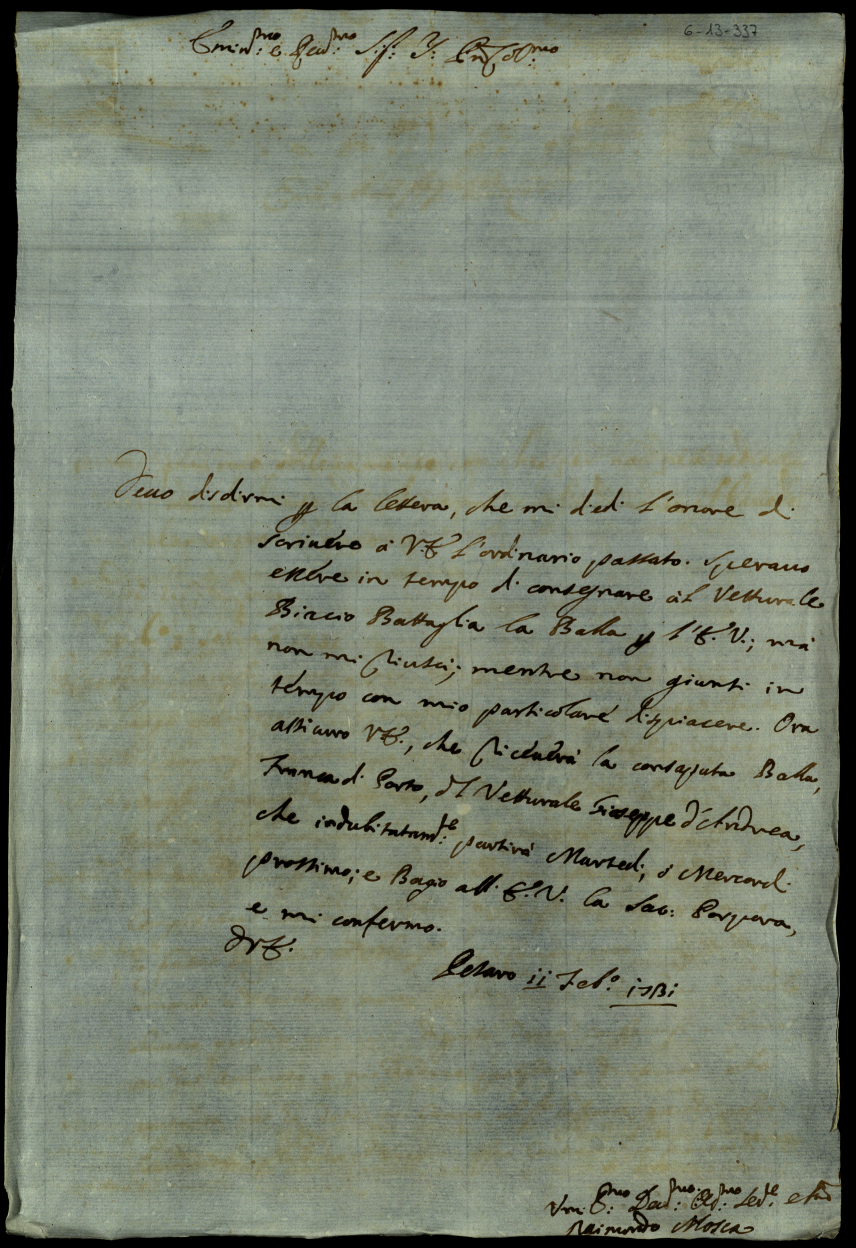 6-13-337
Emin:mo e Red:mo Sig: Sig: Pne Col:mo
Devo disdirmi p la lettera, che mi diedi l'onore di
scrivere à V.E. l'ordinario passato. Speravo
essere in tempo di consegnare al Vetturale
Biacio Battaglia la Balla p l'E.V.; mà
non mi riuscì; mentre non giunsi in
tempo con mio particolare dispiacere. Ora
assicuro V.E., che riceverà la consaputa Balla,
Franca di Porto, dal Vetturale Giuseppe d'Andrea,
che indubitatam:te partirà Martedì, ò Mercordì
prossimo; e Bagio all'E.V. la Sac: Porpora,
e mi confermo.
D.V.E.
Pesaro ii Feb:o
Vm:
Raimondo Mosca